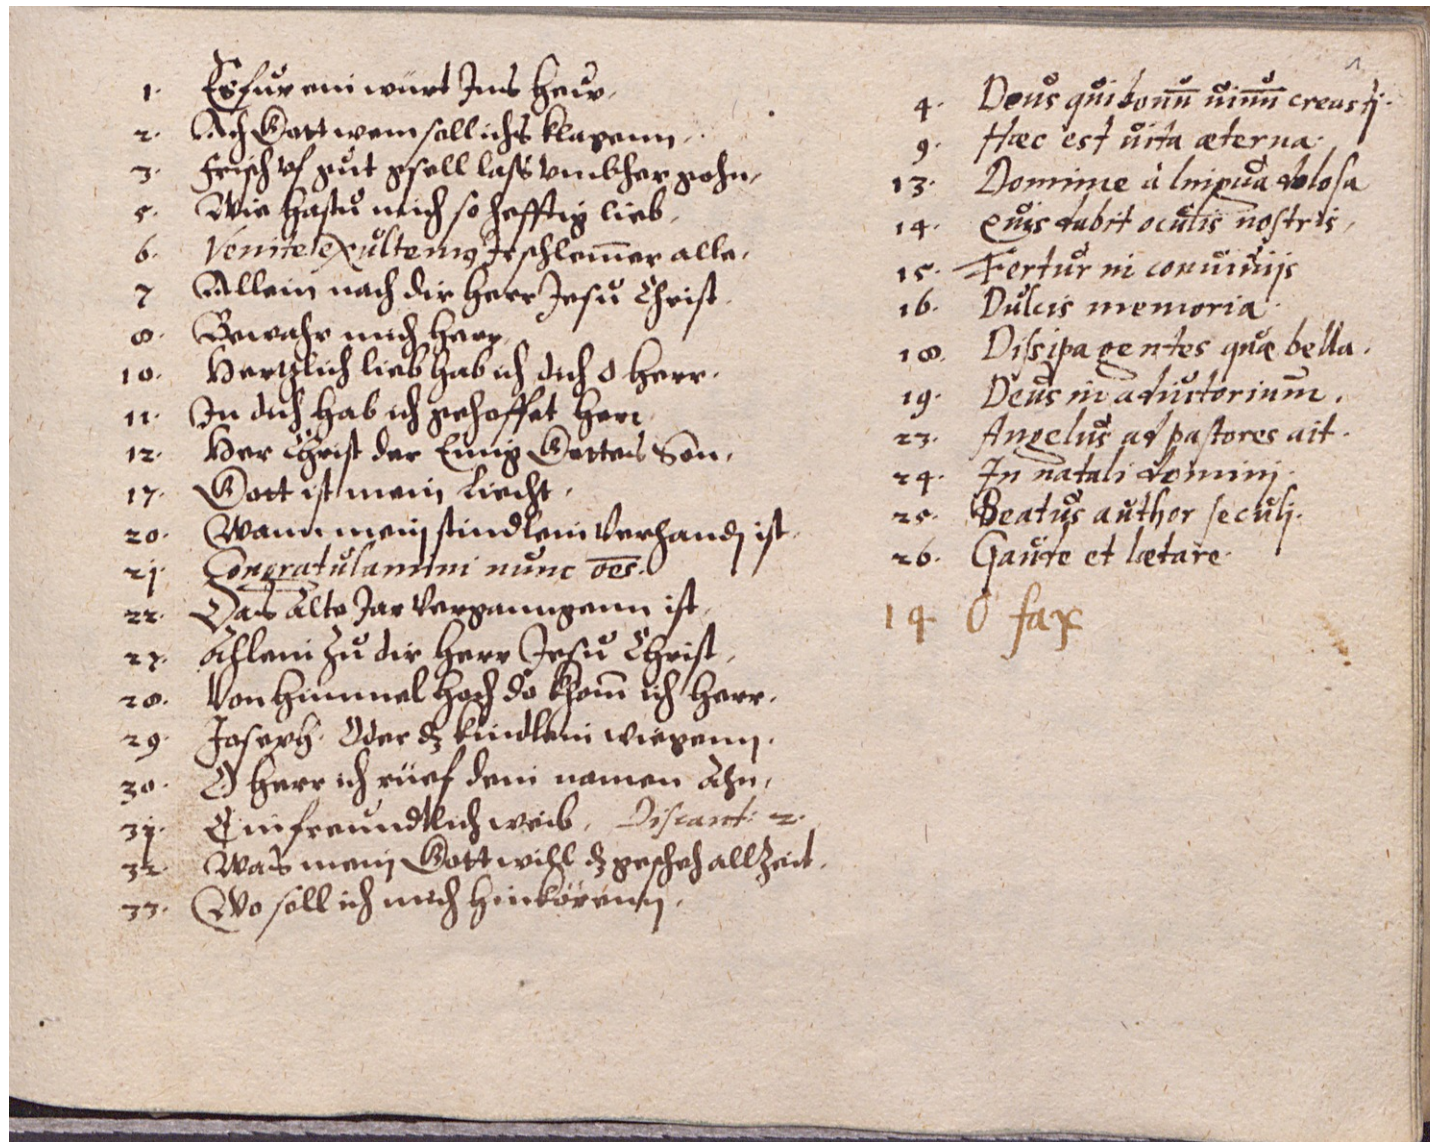 1. Es fur ein würt Ins Heiw.
2. Ach Gott wem soll ichs klagenn.
3. Frisch vf gut gsell lass vmbher gohn,
5. Wie hastu mich so hefftig lieb.
6. Venite Exultemus Ir schlem̄er alle,
7 Allein nach dir Herr Jesu Christ.
8. Bewahr mich Herr,
10. Hertzlich lieb hab ich dich o Herr.
11. In dich hab ich gehoffet Herr
12. Her Christ der Einig Gottes Son,
17. Gott ist mein Liecht,
20. Wann mein stindlein verhandn ist.
21. Congratulamini nunc oēs.
22. Das alte Jar verganngenn ist,
27. Ahlein zu dir Herr Jesu Christ,
28. Von Himmel hoch do khom̄ ich herr.
29. Joseph. Oder dz kindlein wiegenn.
30. O Herr ich rüef dein namen ahn,
31. Ein freundtlich weib, Discant: 2.
32. Was mein Gott wihl dz gescheh allzeit.
33. Wo soll ich mich hinkörenn.
1
4. Deus qui bonū uinū creasti.
9. Hæc est uita æterna.
13. Domine à lingua dolosa
14. Quis dabit oculis nostris,
15. Fertur in conuiuijs
16. Dulcis memoria.
18. Dissipa gentes quæ bella.
19. Deus in adiutorium.
23. Angelus ad pastores ait.
24. In natali domini.
25. Beatus author seculi.
26. Gaude et lætare.
14. O fax